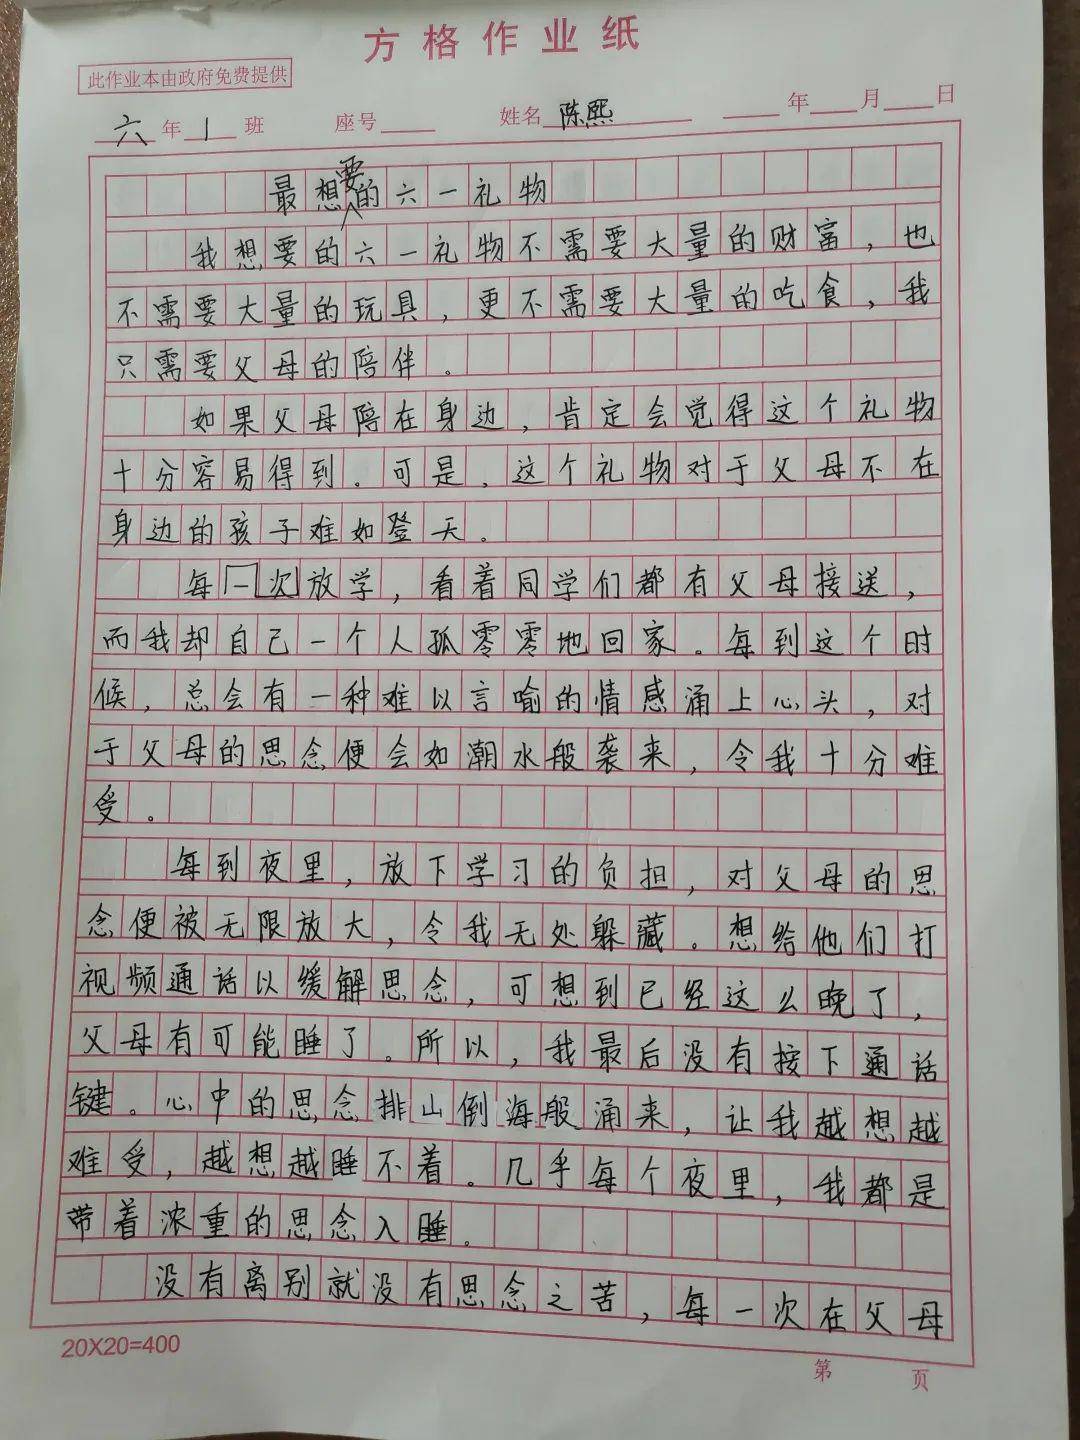 方格作业纸
此作业本由政府免费提供
六年1班 座号 姓名陈熙 年 月 日
最想要的六一礼物
我想要的六一礼物不需要大量的财富，也
不需要大量的玩具，更不需要大量的吃食，我
只需要父母的陪伴。
如果父母陪在身边，肯定会觉得这个礼物
十分容易得到。可是，这个礼物对于父母不在
身边的孩子难如登天。
每一次放学，看着同学们都有父母接送，
而我却自己一个人孤零零地回家。每到这个时
候，总会有一种难以言喻的情感涌上心头，对
于父母的思念便会如潮水般袭来，令我十分难
受。
每到夜里，放下学习的负担，对父母的思
念便被无限放大，令我无处躲藏。想给他们打
视频通话以缓解思念，可想到已经这么晚了，
父母有可能睡了。所以，我最后没有按下通话
键。心中的思念排山倒海般涌来，让我越想越
难受，越想越睡不着。几乎每个夜里，我都是
带着浓重的思念入睡。
没有离别就没有思念之苦，每一次在父母
20X20=400
第 页